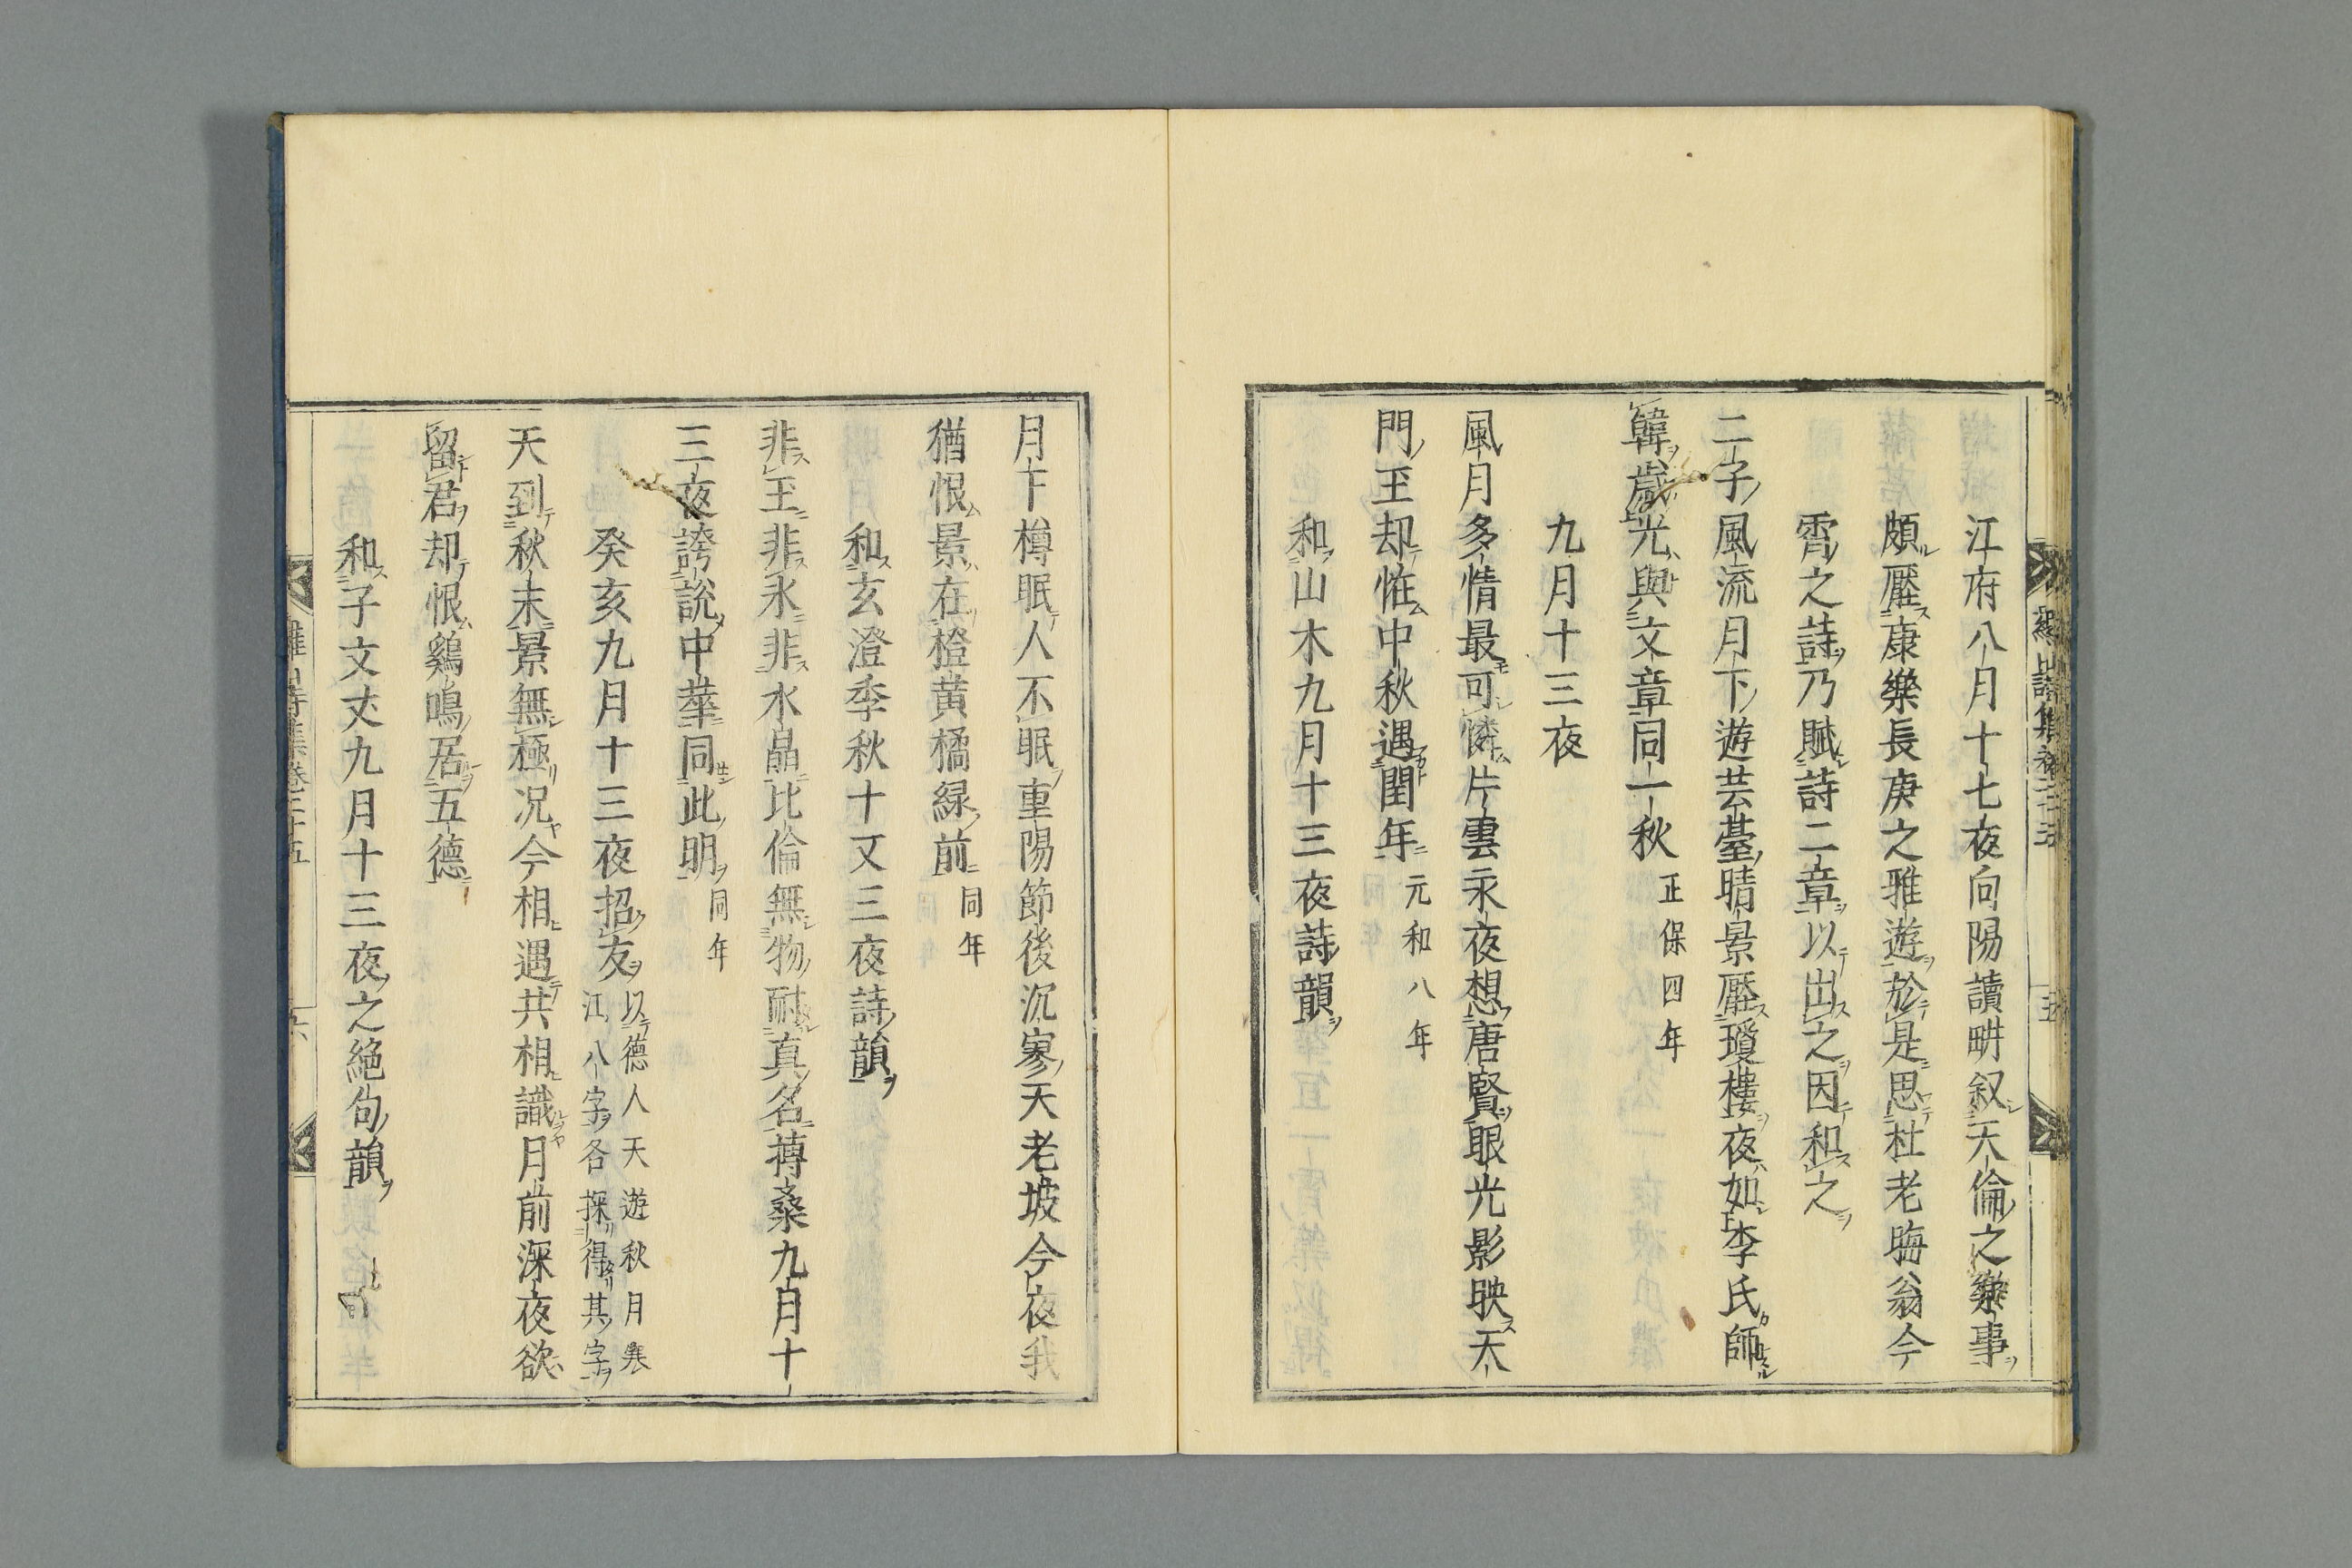 江府八月十七夜向陽讀畊叙天倫之樂事
頗壓康樂長庚之雅遊於是思杜老晦翁今
霄之詩乃賦詩二章以出之因和之
二子風流月下遊芸臺晴景壓瓊樓夜如李氏師
韓歳光與文章同一秋 正保四年
九月十三夜
風月多情最可憐片雲永夜想唐賢眼光影映天
門玉却恠中秋遇閏年 元和八年
和山木九月十三夜詩韻
月下樽眠人不眠重陽節後沉寥天老坡今夜我
猶恨景在橙黄橘緑前 同年
和玄澄季秋十又三夜詩韻
非玉非氷非水晶比倫無物耐真名摶桑九月十
三夜誇説中華同此明 同年
癸亥九月十三夜招友 以德人天遊秋月寒
江八字各探得其字
天到秋末景無極况今相遇共相識月前深夜欲
留君却恨鷄鳴居五德
和子文丈九月十三夜之絶句韻
羅山詩集卷三十五
六